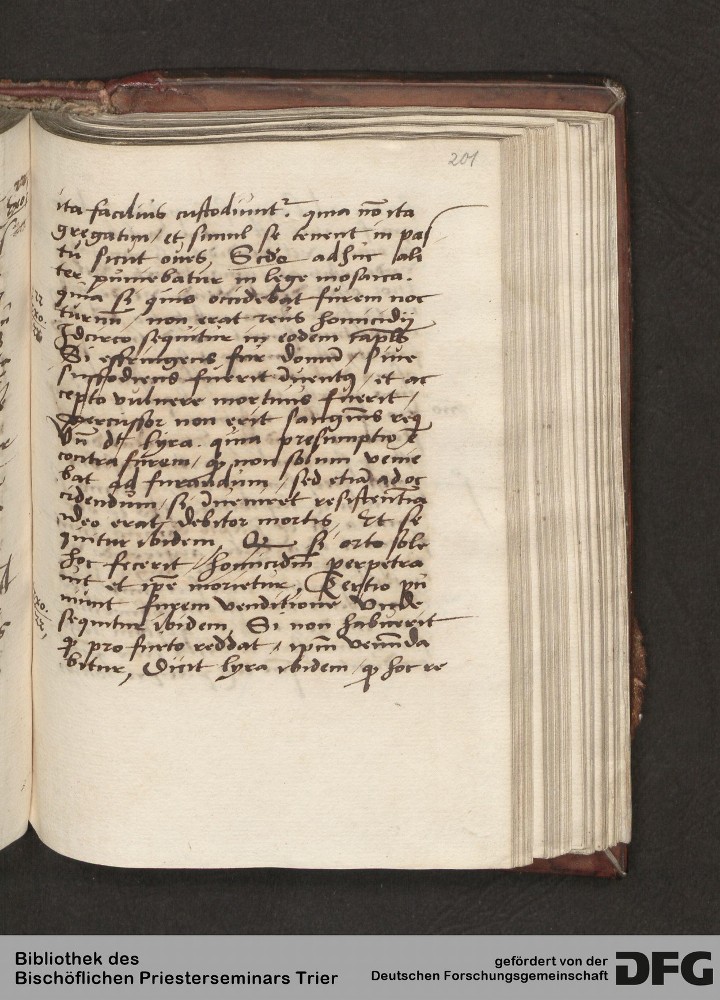 201
ita facilius custodiunt̃. quia nõ ita
gregatim / et simul se tenent in pas
tu sicut oues, Scđo adhuc ali
ter puniebatur in lege mosaica.
quia si quis occidebat furem noc
turnũ / non erat reus homicidij
Idcirco sequitur in eodem cap̃lo
Si effringens fur domũ / siue
suffodiens fuerit Inuentꝰ / et ac
cepto vulnere mortuus fuerit /
percussor non erit sanguĩs reꝰ
Vñ dt̃ lyra. quia presumptio ẽ
contra furem / qͥ non solum venie
bat ad furandum / sed etiã ad oc
cidendum / si Inueniret resistentiã
ideo erat debitor mortis, Et se
quitur ibidem, Qͩ si orto sole
hoc fecerit / homicidiũ perpetra
uit et ipẽ morietur, Tertio pu
niunt furem venditione vnde
sequitur ibidem, Si non habuerit
qͩ pro furto reddat / ipm̃ venũda
bitur, Dicit lyra ibidem qͩ hoc re
22
exo.
22
Bibliothek des
Bischöflichen Priesterseminars Trier
gefördert von der
Deutschen Forschungsgemeinschaft
DFG